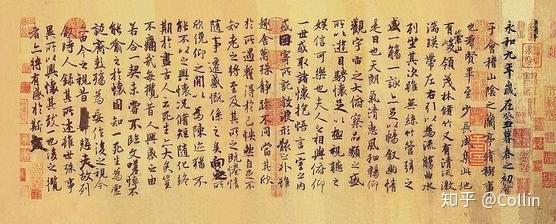 永和九年歲在癸丑暮春之初會
于會稽山陰之蘭亭脩稧事
也群賢畢至少長咸集此地
有崇山峻領茂林脩竹又有清流激
湍暎帶左右引以為流觴曲水
列坐其次雖無絲竹管弦之
盛一觴一詠亦足以暢敘幽情
是日也天朗氣清惠風和暢仰
觀宇宙之大俯察品類之盛
所以遊目騁懷足以極視聽之
娛信可樂也夫人之相與俯仰
一世或取諸懷抱悟言一室之內
或因寄所託放浪形骸之外雖
趣舍萬殊靜躁不同當其欣
於所遇蹔得於己怏然自足不
知老之將至及其所之既惓情
隨事遷感慨係之矣向之所
欣俛仰之閒以為陳迹猶不
能不以之興懷況脩短隨化終
期於盡古人云死生亦大矣豈
不痛哉每攬昔人興感之由
若合一契未嘗不臨文嗟悼不
能喻之於懷固知一死生為虛
誕齊彭殤為妄作後之視今
亦由今之視昔悲夫故列
敘時人錄其所述雖世殊事
異所以興懷其致一也後之攬
者亦將有感於斯文
知乎 @Collin